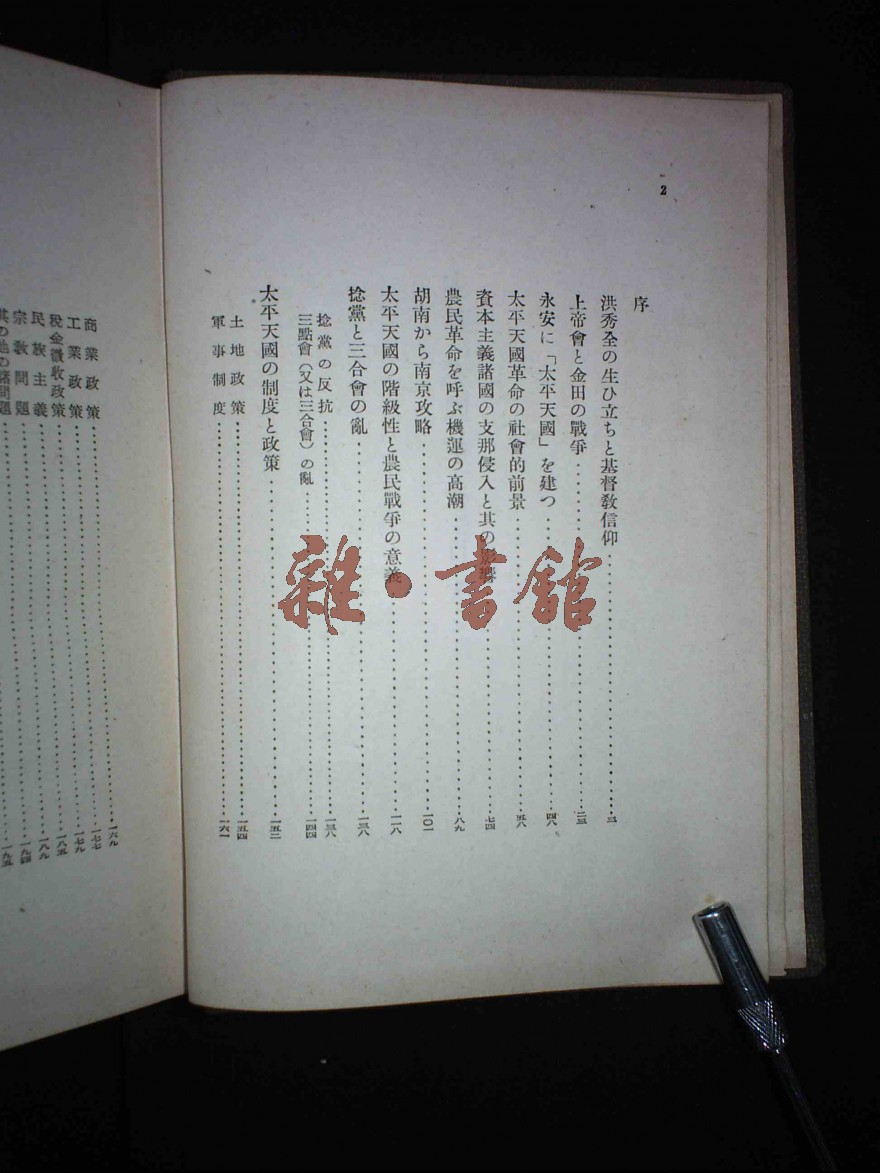 2
序
洪秀全の生ひ立ちと基督敎信仰……三
上帝會と金田の戰爭……二三
永安に「太平天國」を建つ……四八
太平天國革命の社會的前景……五八
資本主義諸國の支那侵入と其の影響……七四
農民革命を呼ぶ機運の高潮……八九
胡南から南京攻略……一〇一
太平天國の階級性と農民戰爭の意義……一一八
捻黨と三合會の亂……一三八
捻黨の反抗……一三八
三點會（又は三合會）の亂……一四四
太平天國の制度と政策……一五二
土地政策……一五四
軍事制度……一六一
商業政策……一六九
工業政策……一七七
稅金徵收政策……一七九
民族主義……一八五
宗敎問題……一八九
其の他の諸問題……一九四
一九五
雜·書館